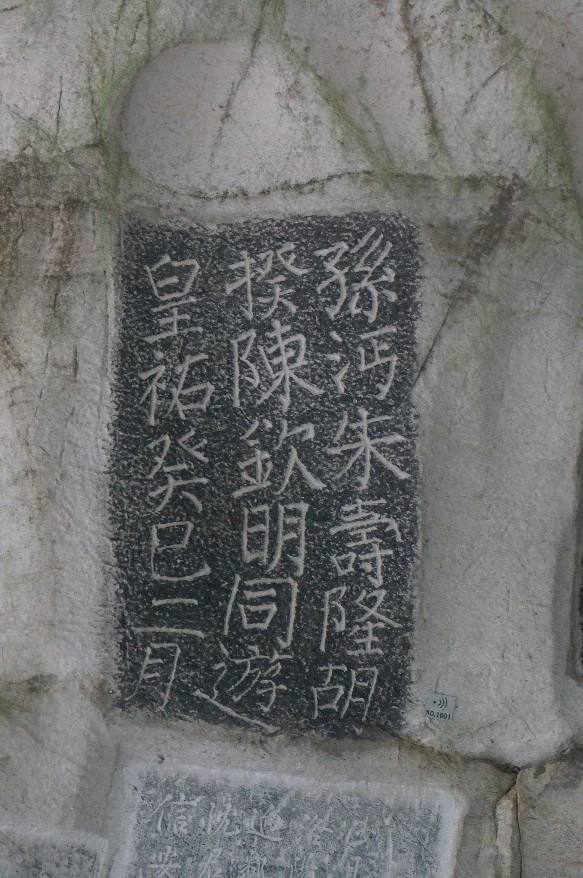 孫沔朱壽隆胡
揆陳欽明同遊
皇祐癸巳二月
NO.1001
信